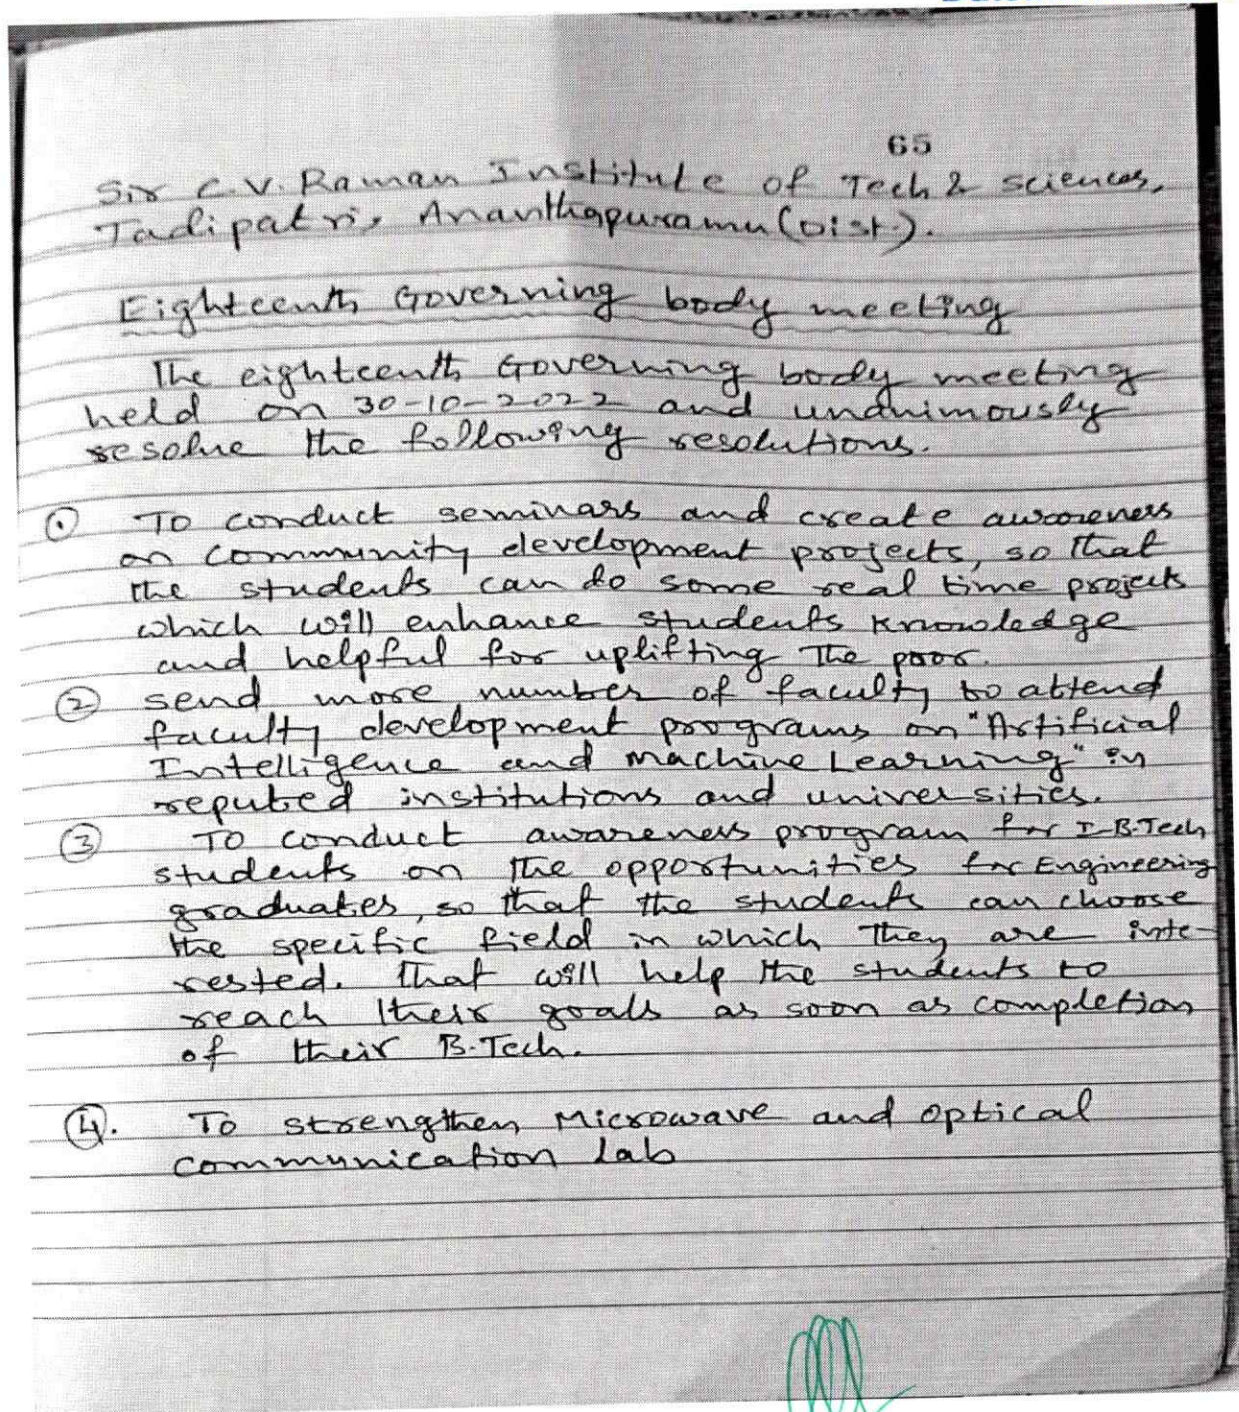 65
Sir C.V. Raman Institute of Tech & sciences,
Tadipatri, Ananthapuramu (Dist.).
Eighteenth Governing body meeting
The eighteenth Governing body meeting
held on 30-10-2022 and unanimously
resolve the following resolutions.
① To conduct seminars and create awareness
on community development projects, so that
the students can do some real time projects
which will enhance students knowledge
and helpful for uplifting the poor.
② send more number of faculty to attend
faculty development programs on "Artificial
Intelligence and Machine Learning" in
reputed institutions and universities.
③ To conduct awareness program for I-B.Tech
students on the opportunities for Engineering
graduates, so that the students can choose
the specific field in which they are inte-
rested. That will help the students to
reach their goals as soon as completion
of their B.Tech.
④. To strengthen Microwave and optical
communication Lab